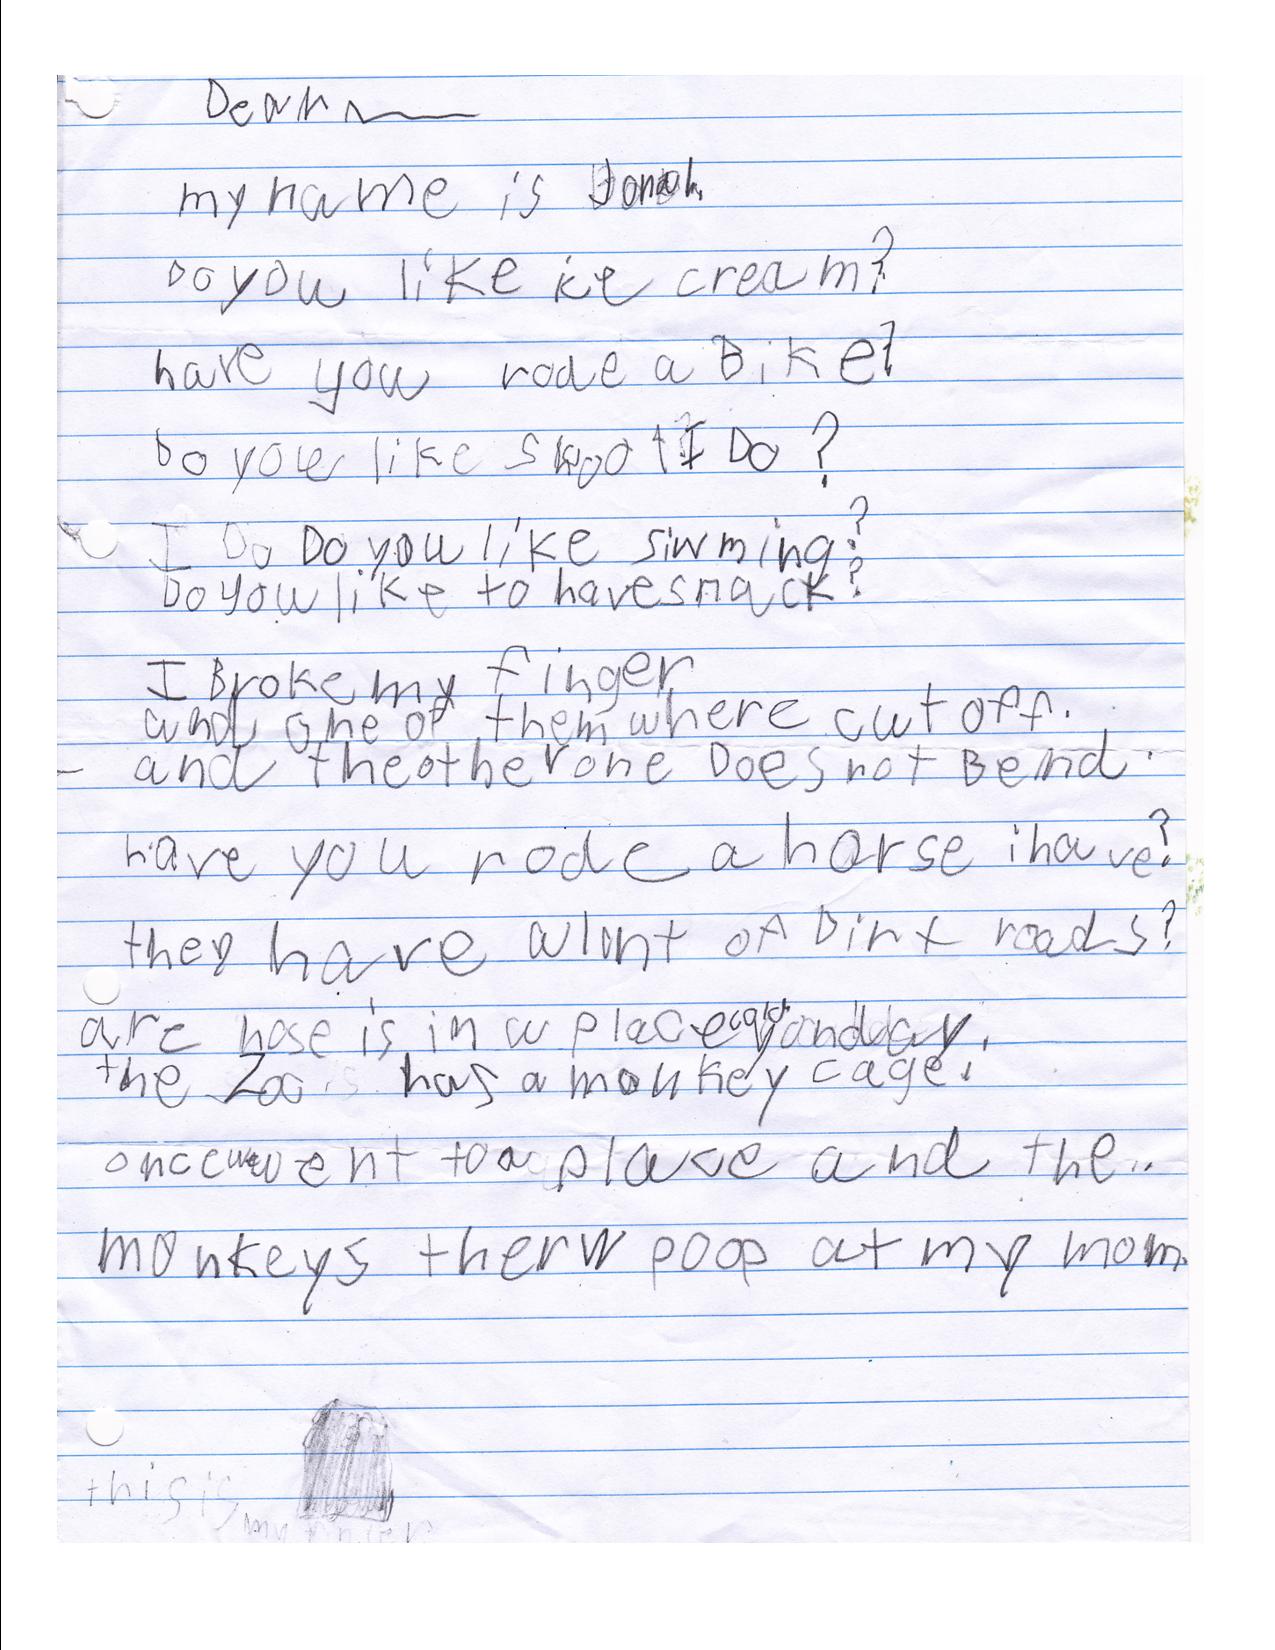 Dear
my name is Jonah.
Do you like ice cream?
have you rode a Bike?
Do you like I Do?
I Do Do you like siwming?
Do you like to have snack?
I Broke my finger
and one of them where cut off.
and the other one Does not Bend.
have you rode a horse i have?
they have alont of Dirt roads?
are hose is in a place
the Zoo has a monkey cage.
once went to a place and the..
monkeys therw poop at my mom.
this is
my finger